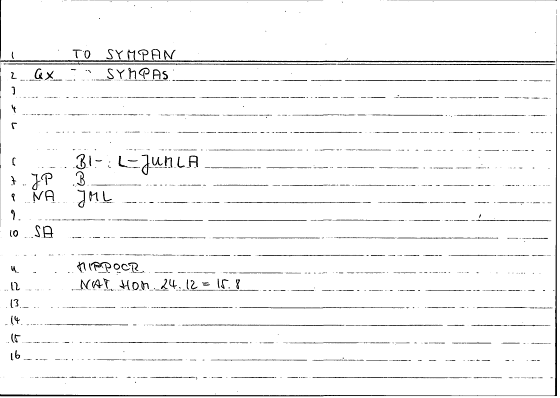 1 TO SYMPAN
2 GX -- SYMPAS
3
4
5
6 BI-. L-JUMLA
7 JP B
8 NA JML
9
10 SA
11 HIPPOCR
12 NAT HOM 24.12 = 15.8
13
14
15
16